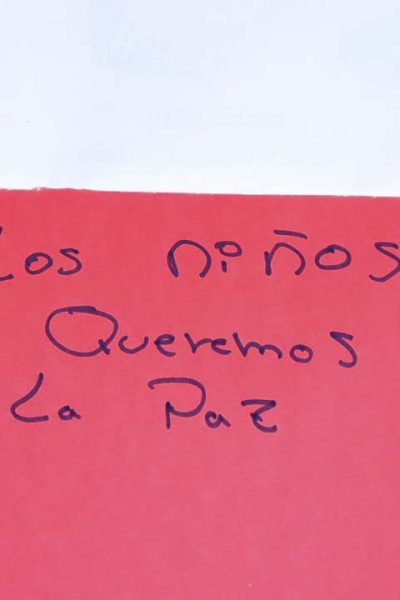 Los niños
Queremos
La Paz